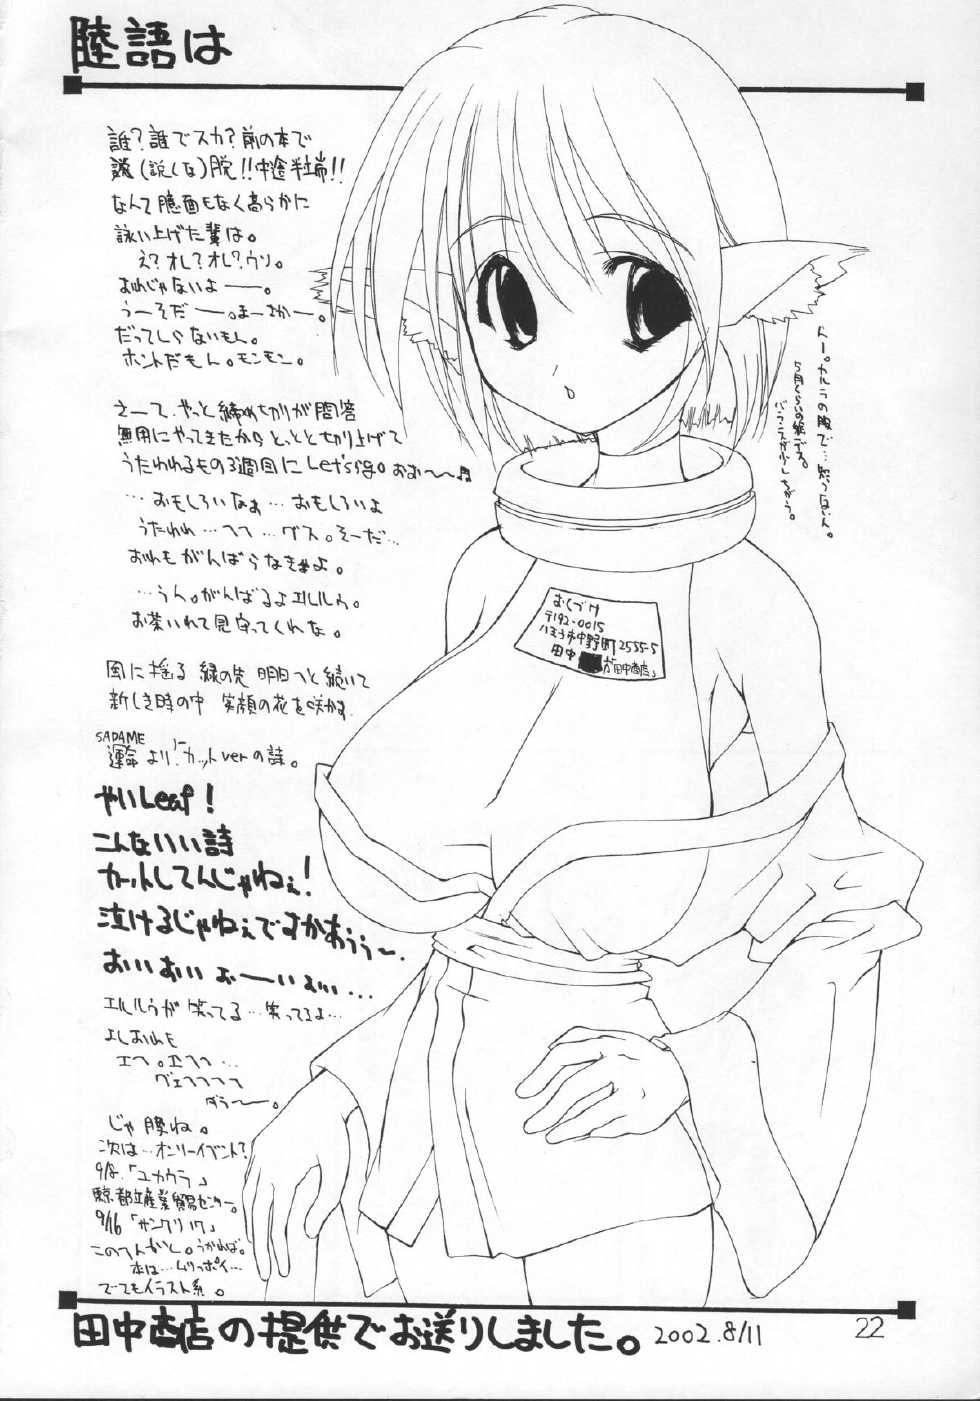 陸語は
誰?誰でスカ?前の本で
談(説しな)脱!!中途半端!!
なんて臆面もなく高らかに
詠い上げた輩は。
え?オレ?オレ?ウソ。
おれじゃないよ——。
うーそだー。まーさかー。
だってしらないもん。
ホントだもん。モンモン。
さーて、やっと締め切りが問答
無用にやってきたからとっとと切り上げて
うたわれるもの3週目にLet's go。おお〜〜♬
…おもしろいなぁ…おもしろいよ
うたわれ…へへ…グス。そーだ…
おれもがんばらなきゃよ。
…うん。がんばるよエルルゥ。
お茶いれて見守ってくれな。
風に揺る 緑の先 明日へと続いて
新しき時の中 笑顔の花を咲かす
SADAME
運命より、カットverの詩。
やいLeaf!
こんないい詩
カットしてんじゃねぇ!
泣けるじゃねぇですかあぅぅ〜.
おいおいぉーいぉぃぃ…
エルルゥが笑ってる…笑ってるよ…
よしおれも
エへ。エへへ…
ヴェへへへへ
だぅ〜。
じゃ腰ね。
次は…オンリーイベント?
9/8.「ユカウラ」
東京都立産業貿易センター。
9/16「サンクリ17」
このへんかと。うかれば。
本は…ムリっポイ…
でてもイラスト系。
んー。カルラの服で…思うないん。
5月くらいの絵デス。
バランスが少しちがう。
おくづけ
〒192-0015
八王子市中野町2555-5
田中 が「田中商店」
田中商店の提供でお送りしました。 2002.8/11
22